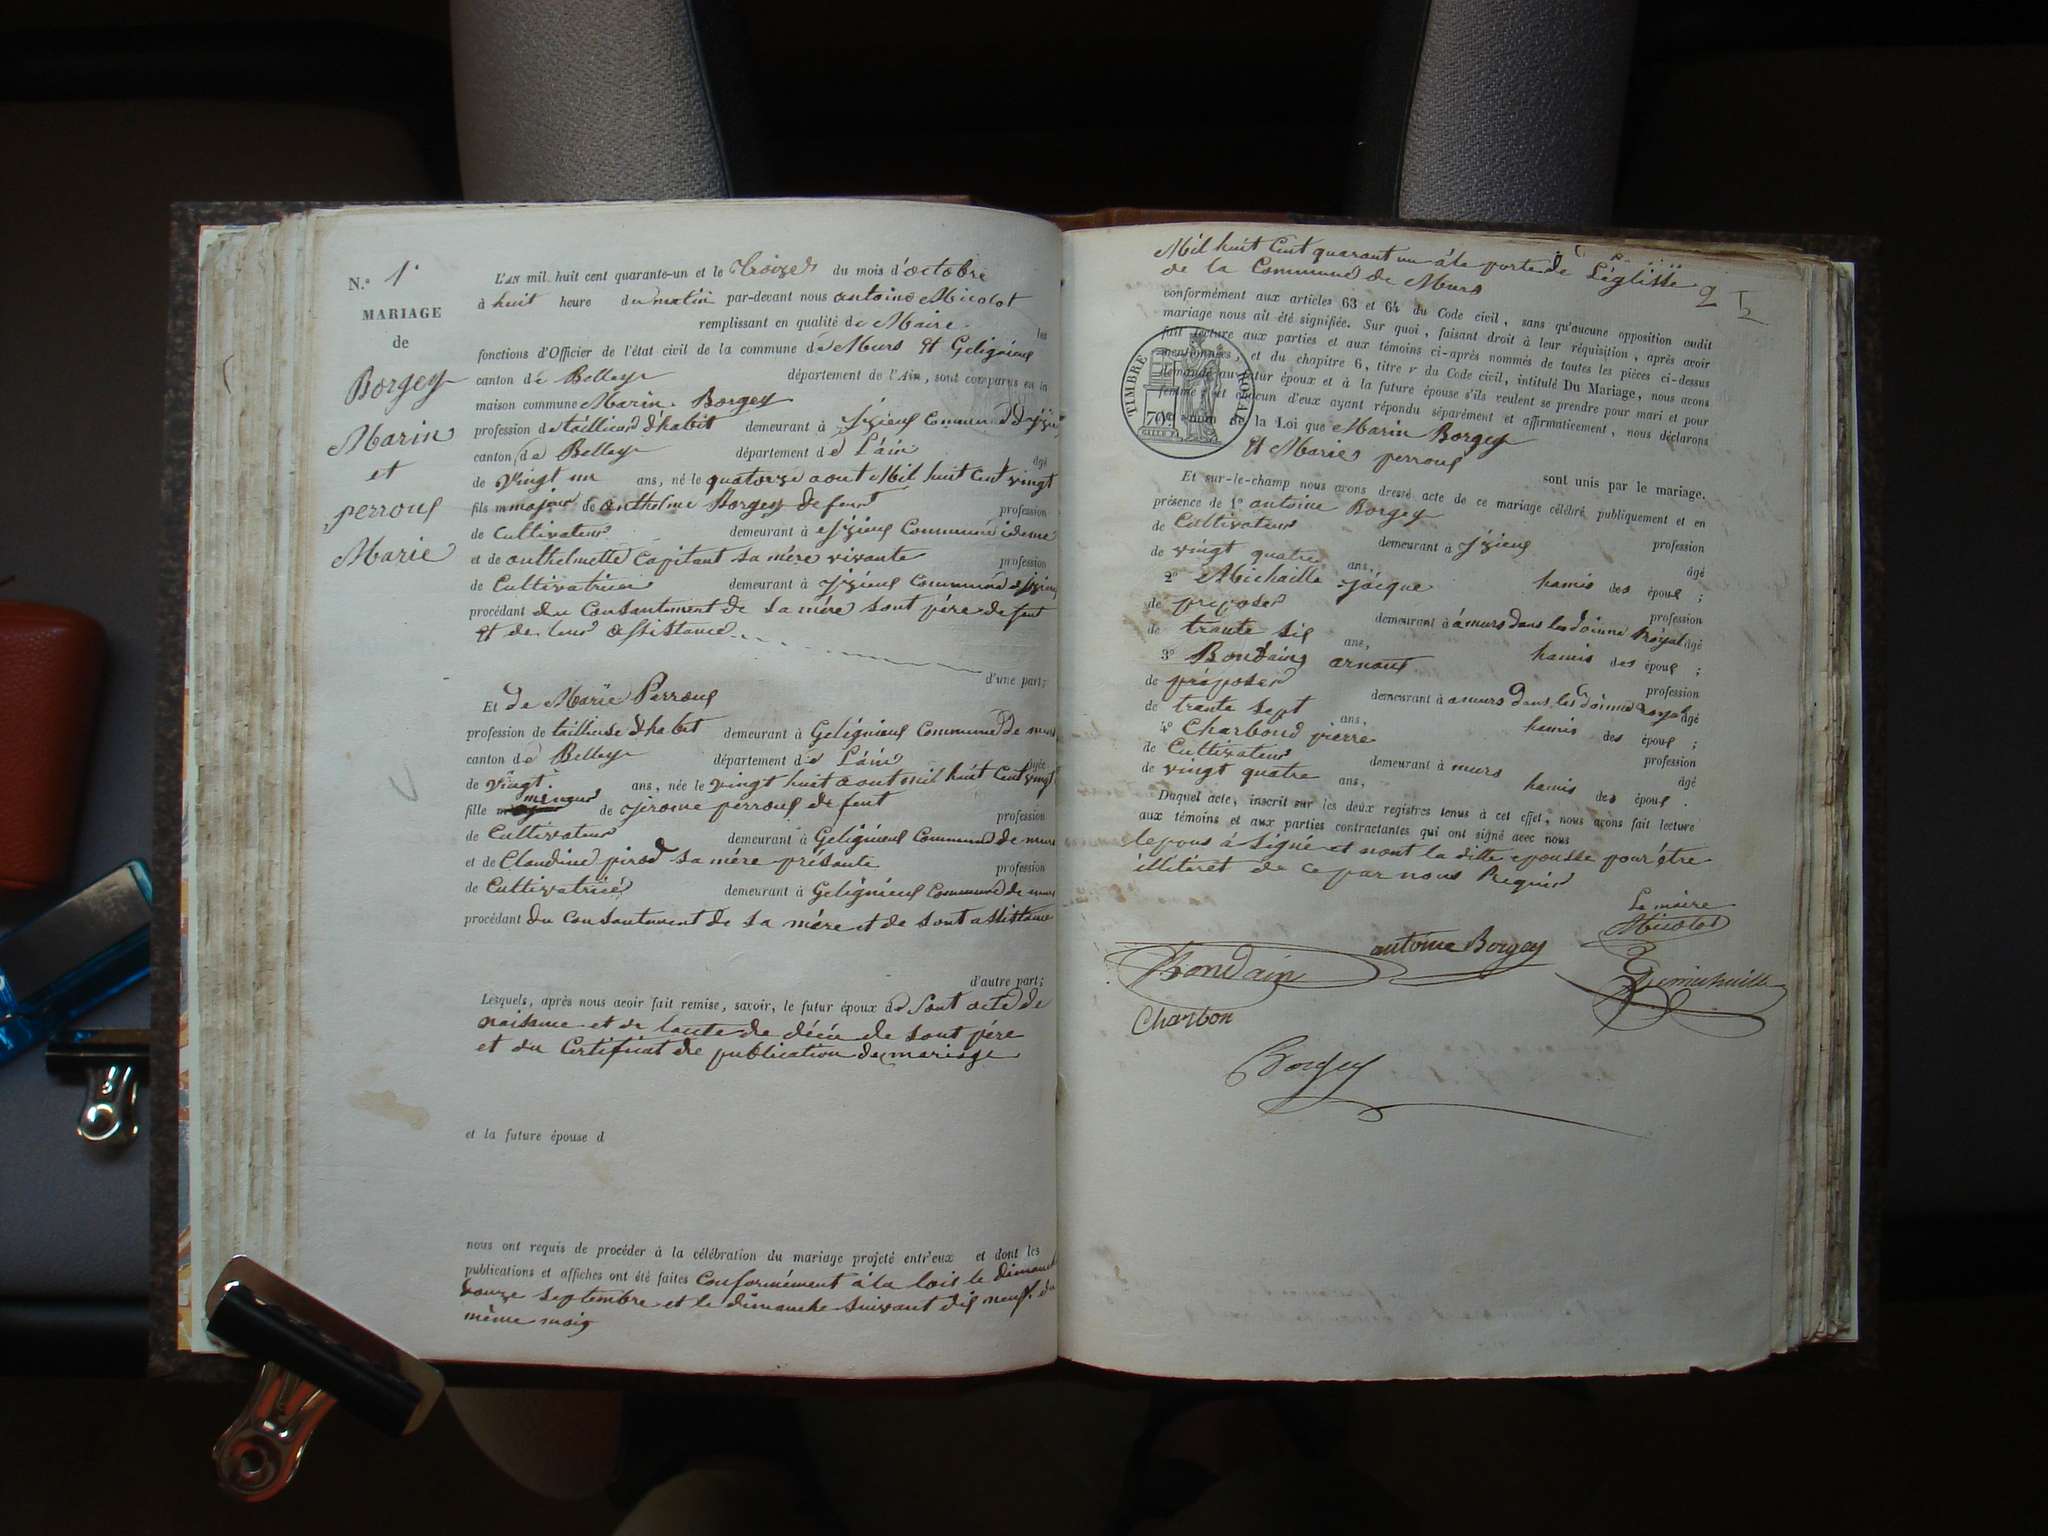 N.º 1.
MARIAGE
de
Borgey
Marin
et
perrous
Marie
L'AN mil huit cent quarante-un et le Treize du mois d'octobre
à huit heure du matin par-devant nous antoine Micolot
remplissant en qualité de Maire les
fonctions d'Officier de l'état civil de la commune de Murs Et Geligneus
canton de Belley département de l'Ain, sont comparus en la
maison commune Marin Borgey
profession de tailleur d'habit demeurant à Izieus Commune d'Izieu
canton de Belley département de L'ain âgé
de vingt un ans, né le quatorze aout Mil huit Cent vingt
fils majeur de anthelme Borgey defeut profession
de Cultivateur demeurant à Izieus Commune ideme
et de anthelmette Capitant sa mère vivante profession
de Cultivatrice demeurant à Izieus Commune d'Izieu
procédant du Consantement de sa mére sont pére defeut
Et de leur assistance
d'une part;
Et de Marie Perrous
profession de tailleuse d'habit demeurant à Geligneus Commune de murs
canton de Belley département de L'áin âgée
de vingt ans, née le vingt huit aout mil huit Cent vingt
mineur
fille de jirome perrous defeut
profession
de Cultivateur demeurant à Geligneus Commune de murs
et de Claudine pirod sa mére présante profession
de Cultivatrice demeurant à Geligneus Commune de murs
procédant du Consantement de sa mére et de sont assistance
d'autre part;
Lesquels, après nous avoir fait remise, savoir, le futur époux de sont acte de
naissance et de lacte de décé de sont pére
et du Certificat de publication de mariage
et la future épouse d
nous ont requis de procéder à la célébration du mariage projeté entr'eux et dont les
publications et affiches ont été faites Conformément à la lois le dimanche
douze septembre et le dimanche suivant dis neuf du
même mois
Mil huit Cent quarant un à la porte de L'églisse
de la Commune de Murs
2
conformément aux articles 63 et 64 du Code civil, sans qu'aucune opposition audit
mariage nous ait été signifiée. Sur quoi, faisant droit à leur réquisition, après avoir
fait lecture aux parties et aux témoins ci-après nommés de toutes les pièces ci-dessus
mentionnées, et du chapitre 6, titre v du Code civil, intitulé Du Mariage, nous avons
demandé au futur époux et à la future épouse s'ils veulent se prendre pour mari et pour
femme; et chacun d'eux ayant répondu séparément et affirmativement, nous déclarons
au nom de la Loi que Marin Borgey
Et Marie perrous
sont unis par le mariage.
TIMBRE ROYAL
70
Et sur-le-champ nous avons dressé acte de ce mariage célébré publiquement et en
présence de 1º antoine Borgey
profession
de Cultivateur demeurant à Izieus
âgé
de vingt quatre ans, hamis des épous;
2º Michaille Jacque profession
de préposer demeurant à amurs dans les doinne Royal âgé
de trante sis ans, hamis des épous;
3º Bondains arnaus profession
de préposer demeurant à amurs dans les doinne Royal âgé
de trante sept ans, hamis des épous;
4º Charbond pierre profession
de Cultivateur demeurant à murs âgé
de vingt quatre ans, hamis des épous.
Duquel acte, inscrit sur les deux registres tenus à cet effet, nous avons fait lecture
aux témoins et aux parties contractantes qui ont signé avec nous
lepous à Signé et nont la ditte epousse pour étre
illitéret de ce par nous Requis
Le maire
Micolot
antoine Borgey
Bondain
Charbon
Borgey